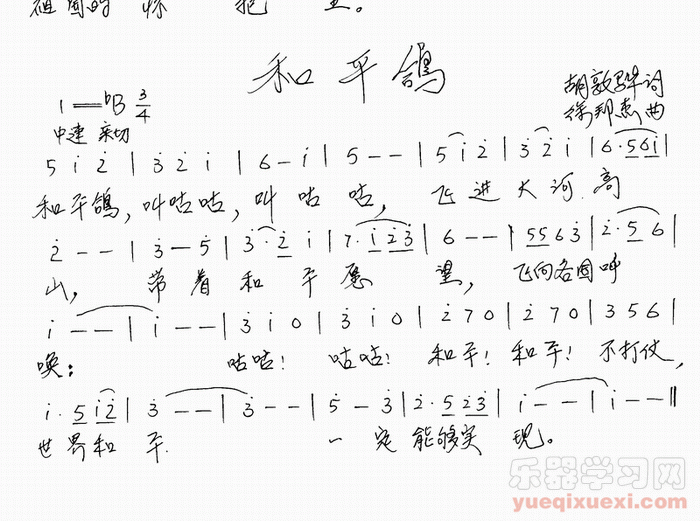 祖国的怀抱里。
和平鸽
1=bB 3/4
中速 亲切
胡敦骅词
徐邦杰曲
5 i̇ 2̇ | 3̇ 2̇ i̇ | 6 – i̇ | 5 – – | 5 i̇ 2̇ | 3̇ 2̇ i̇ | 6·5 6 i̇ |
和平鸽,叫咕咕,叫咕咕,飞进大河高
2̇ – – | 3̇ – 5̇ | 3̇·2̇ i̇ | 7·i̇ 2̇ 3̇ | 6 – – | 5 5 6 3̇ | 2̇·5 6 |
山,带着和平愿望,飞向各国呼
i̇ – – | i̇ – – | 3̇ i̇ 0 | 3̇ i̇ 0 | 2̇ 7 0 | 2̇ 7 0 | 3 5 6 |
唤:咕咕!咕咕!和平!和平!不打仗,
i̇·5 i̇ 2̇ | 3̇ – – | 3̇ – – | 5̇ – 3̇ | 2̇·5 2̇ 3̇ | i̇ – – | i̇ – – ‖
世界和平一定能够实现。
乐器学习网
yueqixuexi.com